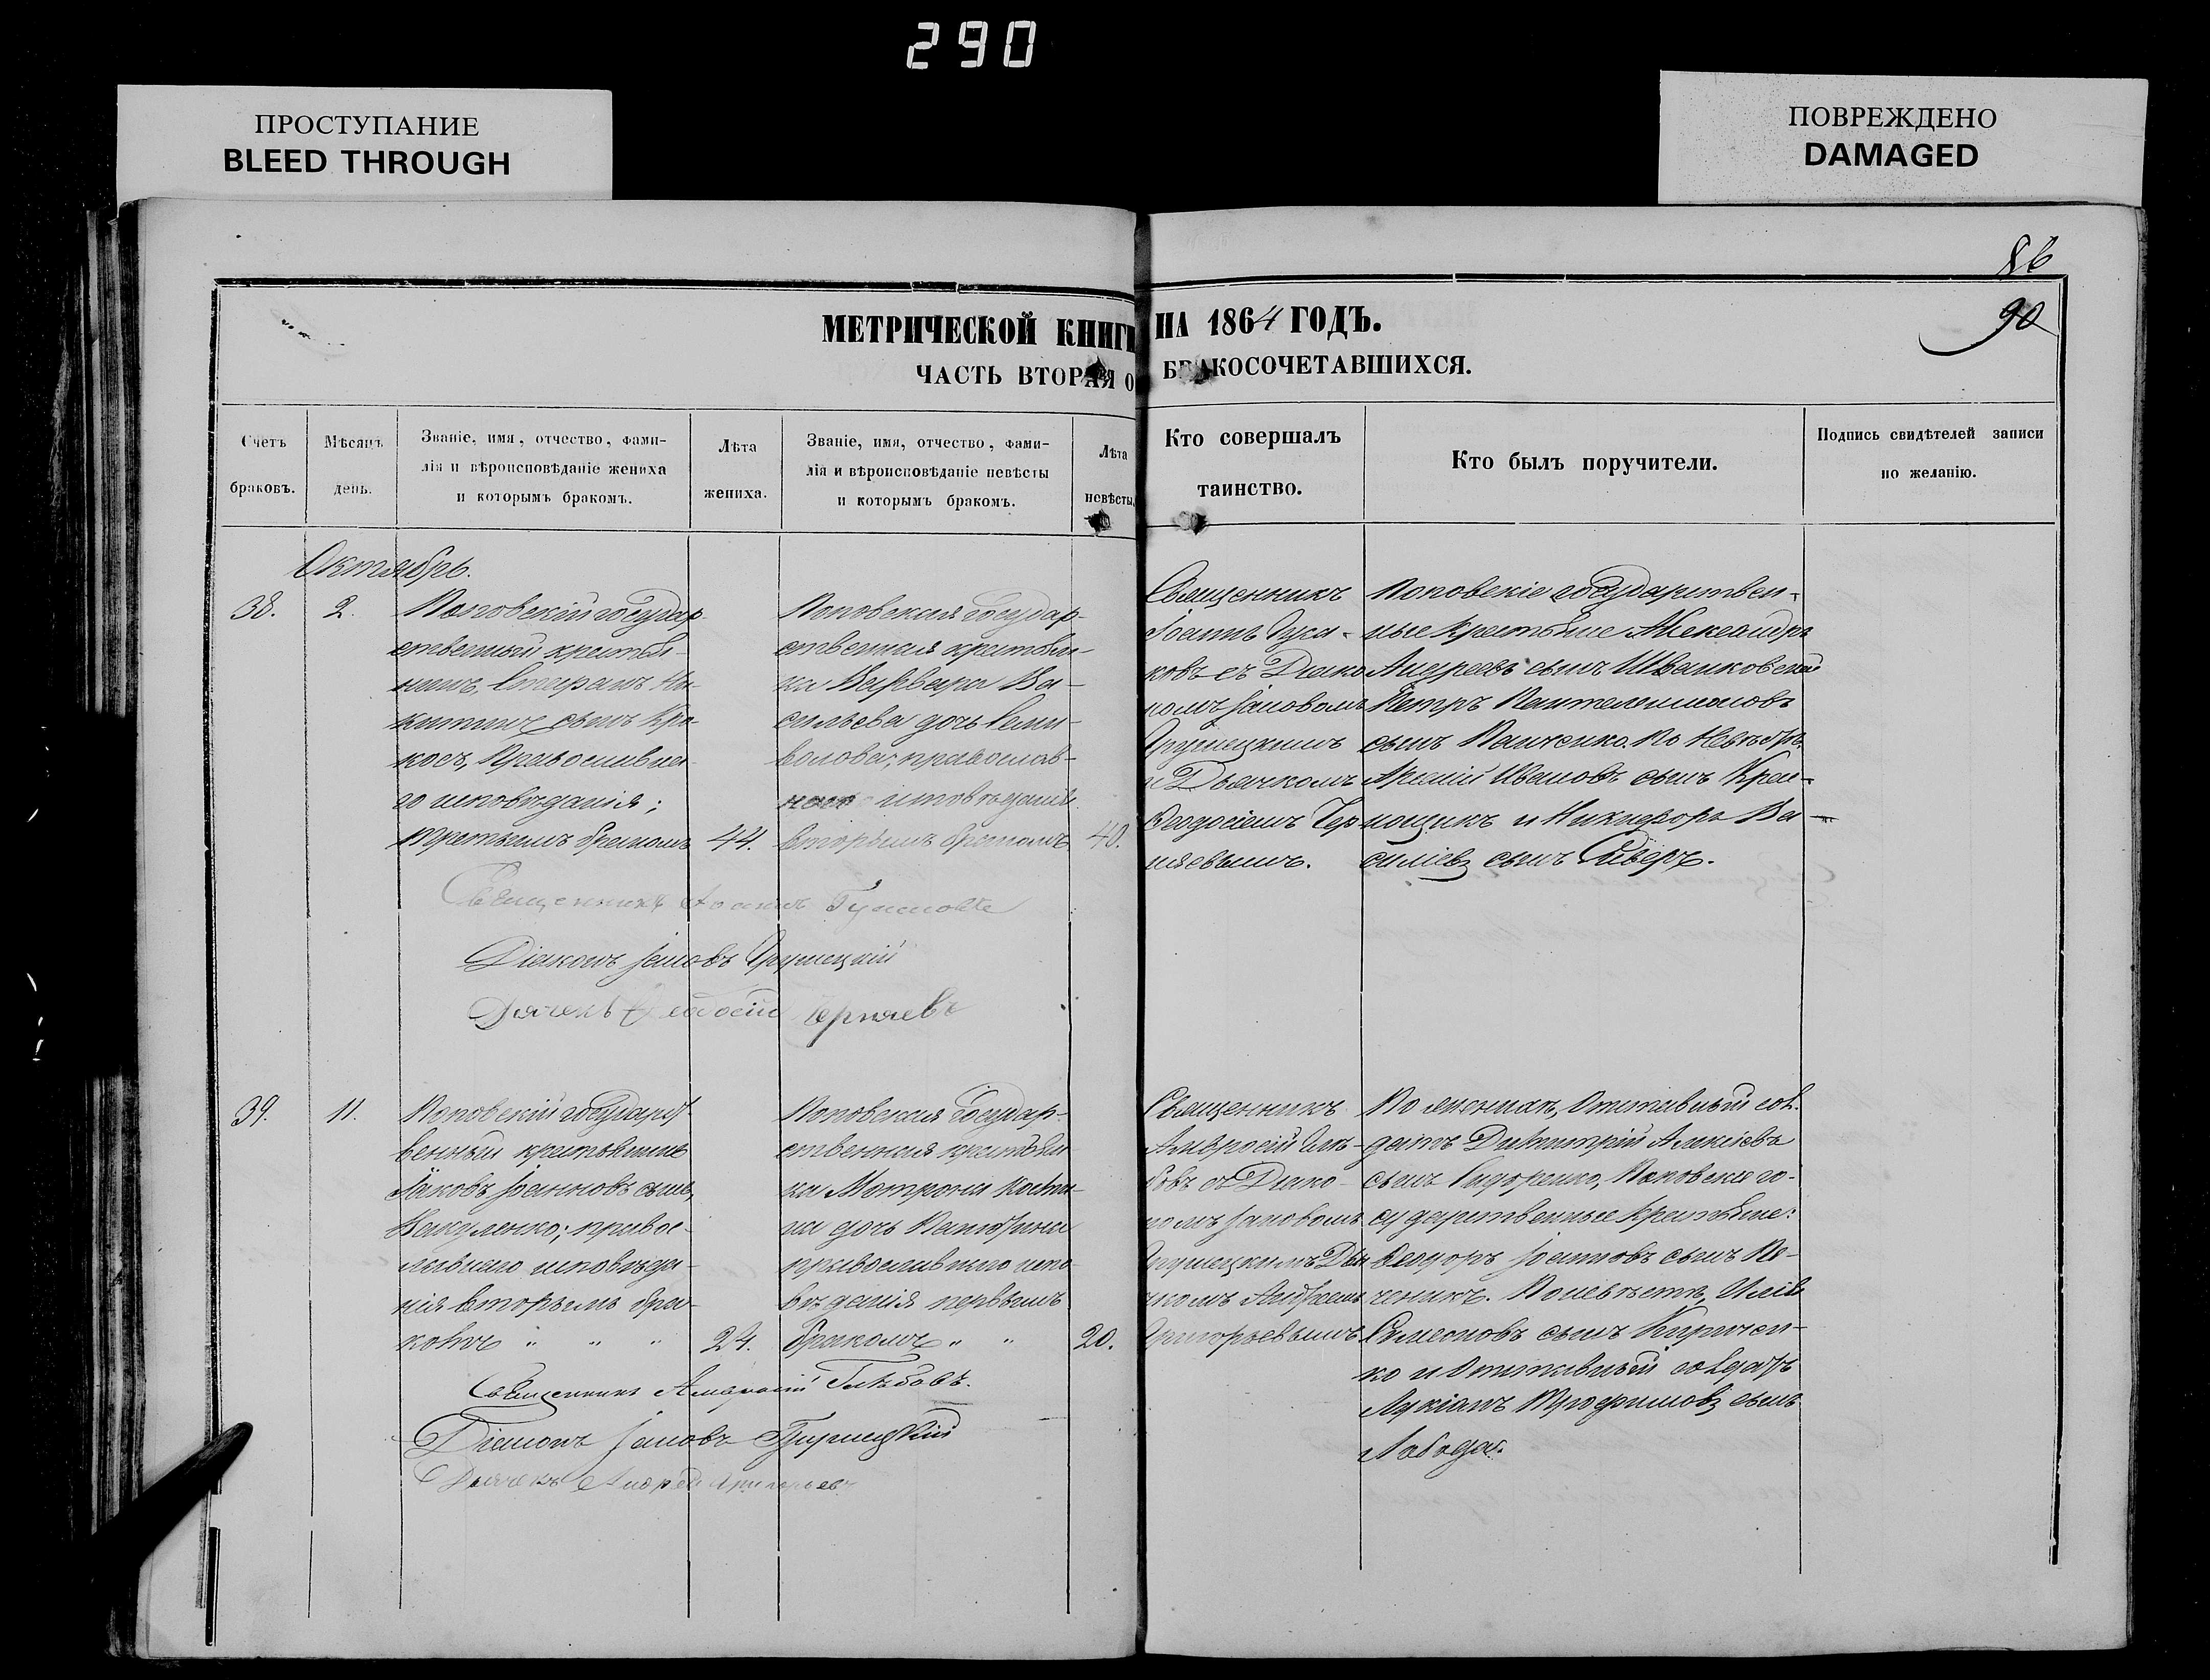 290
ПРОСТУПАНИЕ
BLEED THROUGH
ПОВРЕЖДЕНО
DAMAGED
86
90
МЕТРИЧЕСКОЙ КНИГИ НА 1864 ГОДЪ.
ЧАСТЬ ВТОРАЯ О БРАКОСОЧЕТАВШИХСЯ.
Счетъ
браковъ.
Мѣсяцъ
день.
Званіе, имя, отчество, фами-
лія и вѣроисповѣданіе жениха
и которымъ бракомъ.
Лѣта
жениха.
Званіе, имя, отчество, фами-
лія и вѣроисповѣданіе невѣсты
и которымъ бракомъ.
Лѣта
невѣсты.
Кто совершалъ
таинство.
Кто былъ поручители.
Подпись свидѣтелей записи
по желанію.
Октябрь.
38.
2.
Поповскій государ-
ственный крестья-
нинъ,
сынъ
Православна-
го исповѣданія;
третьимъ бракомъ
44.
Поповская государ-
ственная крестьян-
ка Варвара Ва-
сильева дочь
православ-
исповѣданія
вторымъ бракомъ
40.
Священникъ
Іоаннъ
съ Діако-
номъ Іаковомъ
и Дьячкомъ
Феодосіемъ Чер-
няевымъ.
Поповскіе государствен-
ные крестьяне Александръ
Андреевъ сынъ
Петръ Пантелеимоновъ
сынъ Панченко. По невѣстѣ
Ивановъ сынъ
и Никифоръ Ва-
силіевъ сынъ
Священникъ Іоаннъ
Діаконъ Іаковъ
Дьячекъ Феодосій Черняевъ
39.
11.
Поповскій государст-
венный крестьянинъ
Іаковъ Іоанновъ сынъ
Вакуленко; правос-
лавнаго исповѣда-
нія вторымъ бра-
комъ " " "
24.
Поповская государ-
ственная крестьян-
ка Матрона
дочь
православнаго испо-
вѣданія первымъ
бракомъ " "
20.
Священникъ
Амвросій Глѣ-
бовъ съ Діако-
номъ Іаковомъ
Дья-
чкомъ Андреемъ
Григорьевымъ
По женихѣ, Отставный сол-
датъ Димитрій Алексіевъ
сынъ Сидоренко, Поповскіе го-
сударственные крестьяне:
Феодоръ Іоанновъ сынъ
По невѣстѣ, Илія
Симеоновъ сынъ Киричен-
ко и Отставный солдатъ
Лукіанъ Трофимовъ сынъ
Лобода.
Священникъ Амвросій Глѣбовъ.
Діаконъ Іаковъ
Дьячекъ Андрей Григорьевъ